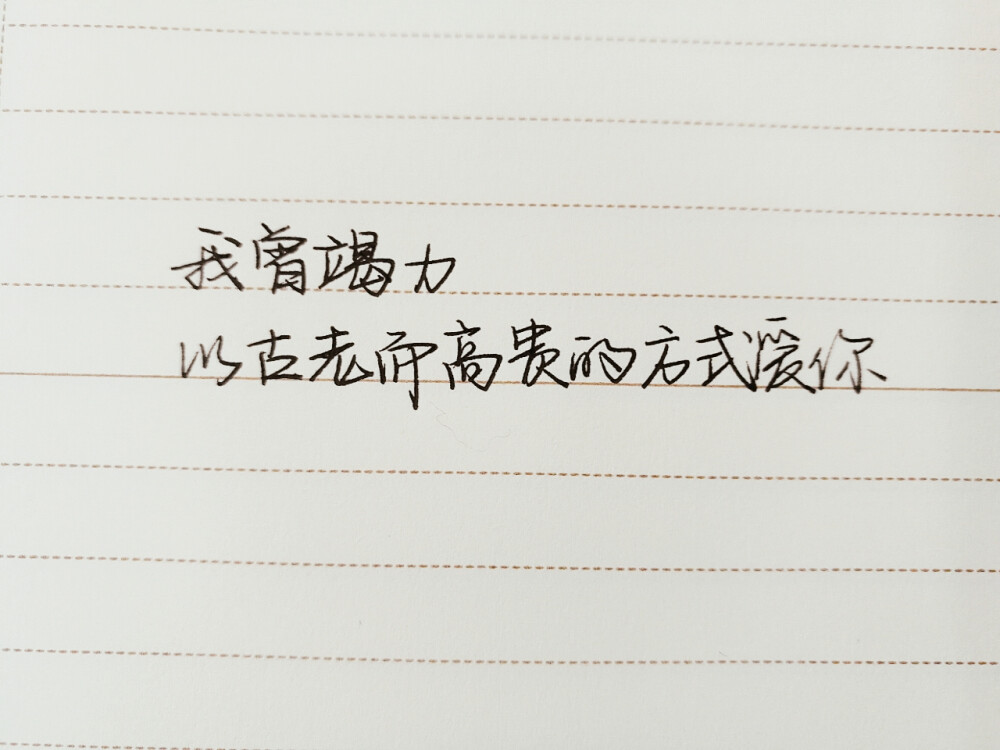 我曾竭力
以古老而高贵的方式爱你